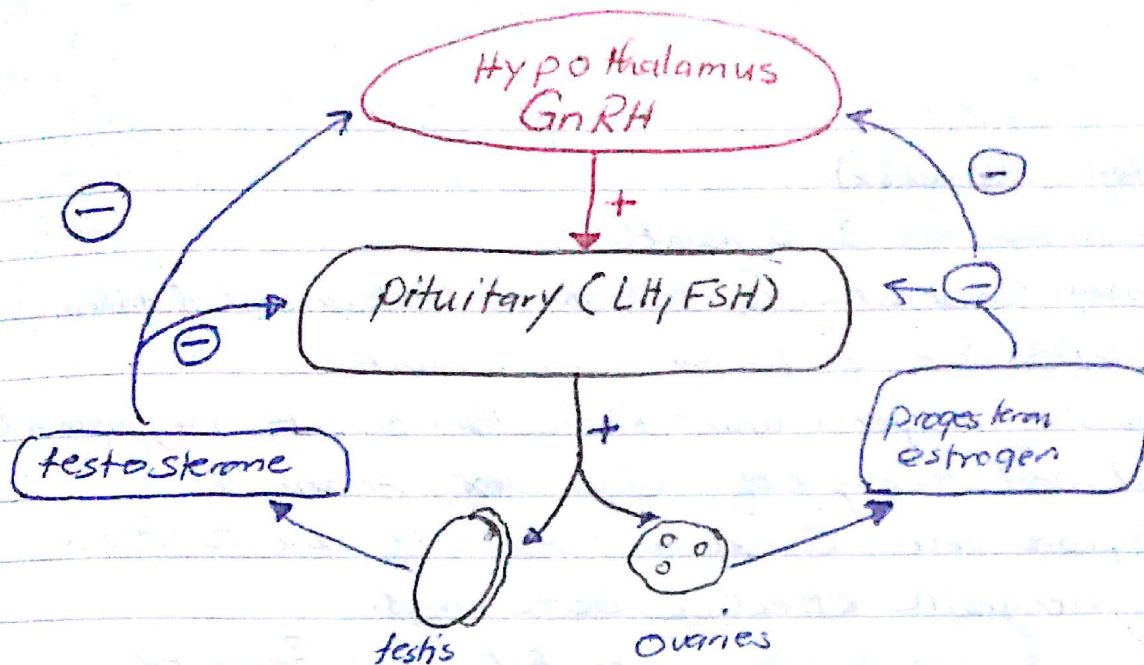 Hypothalamus
GnRH
+
pituitary (LH, FSH)
+
testosterone
progesteron
estrogen
testis
Ovaries
−
−
−
−